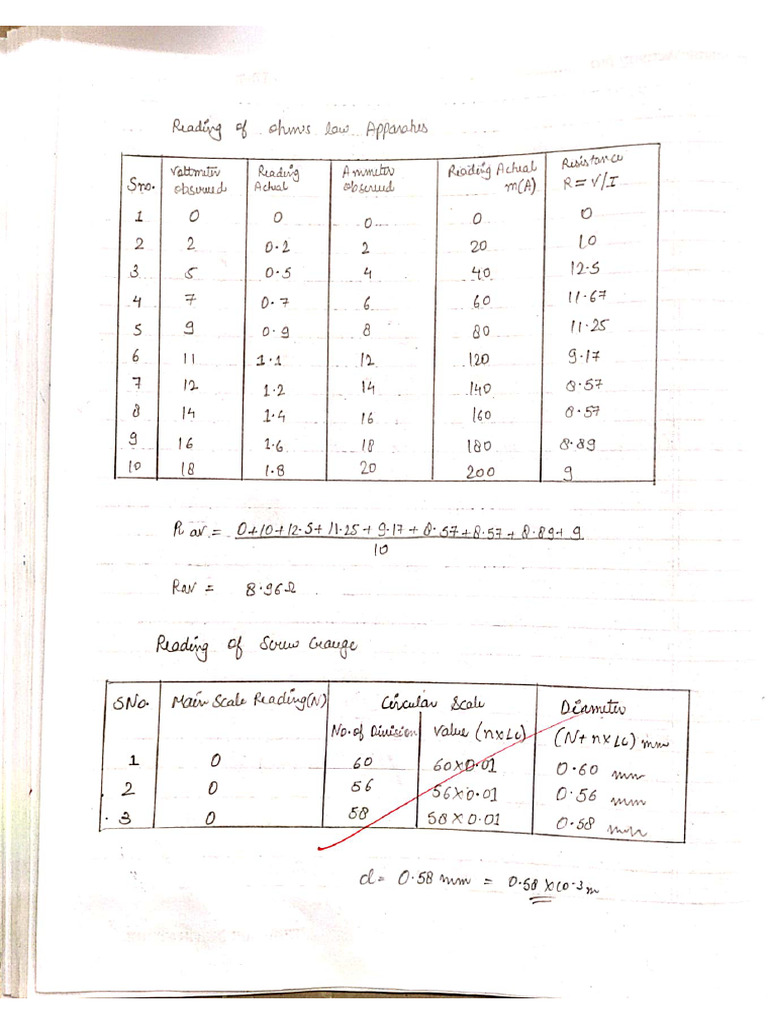 Reading of ohm's law Apparatus
Sno. Voltmeter observed Reading Actual Ammeter observed Reading Actual m(A) Resistance R = V/I
1 0 0 0 0 0
2 2 0.2 2 20 10
3 5 0.5 4 40 12.5
4 7 0.7 6 60 11.67
5 9 0.9 8 80 11.25
6 11 1.1 12 120 9.17
7 12 1.2 14 140 8.57
8 14 1.4 16 160 8.57
9 16 1.6 18 180 8.89
10 18 1.8 20 200 9
R av. = 0+10+12.5+11.25+9.17+8.57+8.57+8.89+9
10
Rav = 8.96Ω
Reading of Screw Gauge
SNo. Main Scale Reading(N) Circular Scale Diameter
No. of Division Value (n×Lc) (N+n×Lc) mm
1 0 60 60×0.01 0.60 mm
2 0 56 56×0.01 0.56 mm
3 0 58 58×0.01 0.58 mm
d = 0.58 mm = 0.58×10-3m